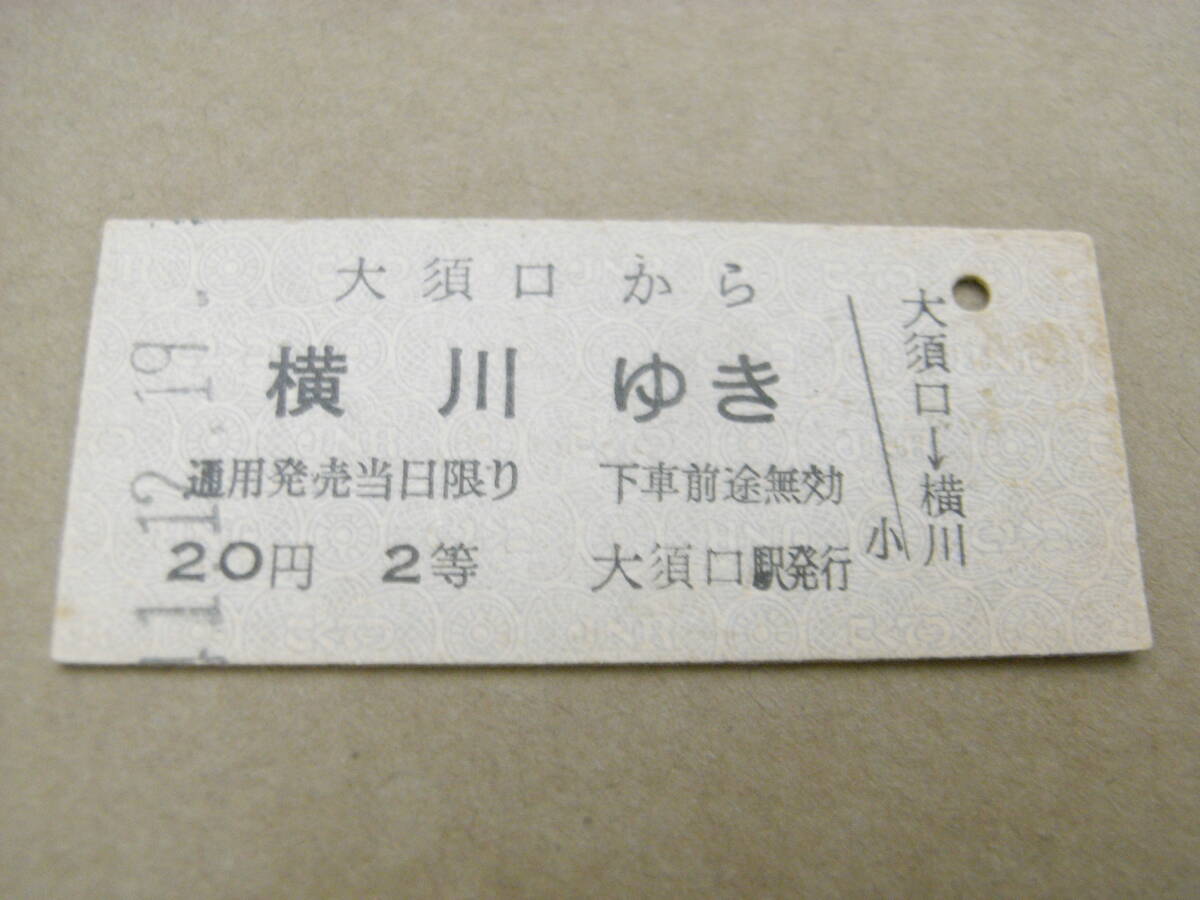 大須口から
横川ゆき
通用発売当日限り 下車前途無効
20円 2等 大須口駅発行
大須口→横川
小
1.12.19.